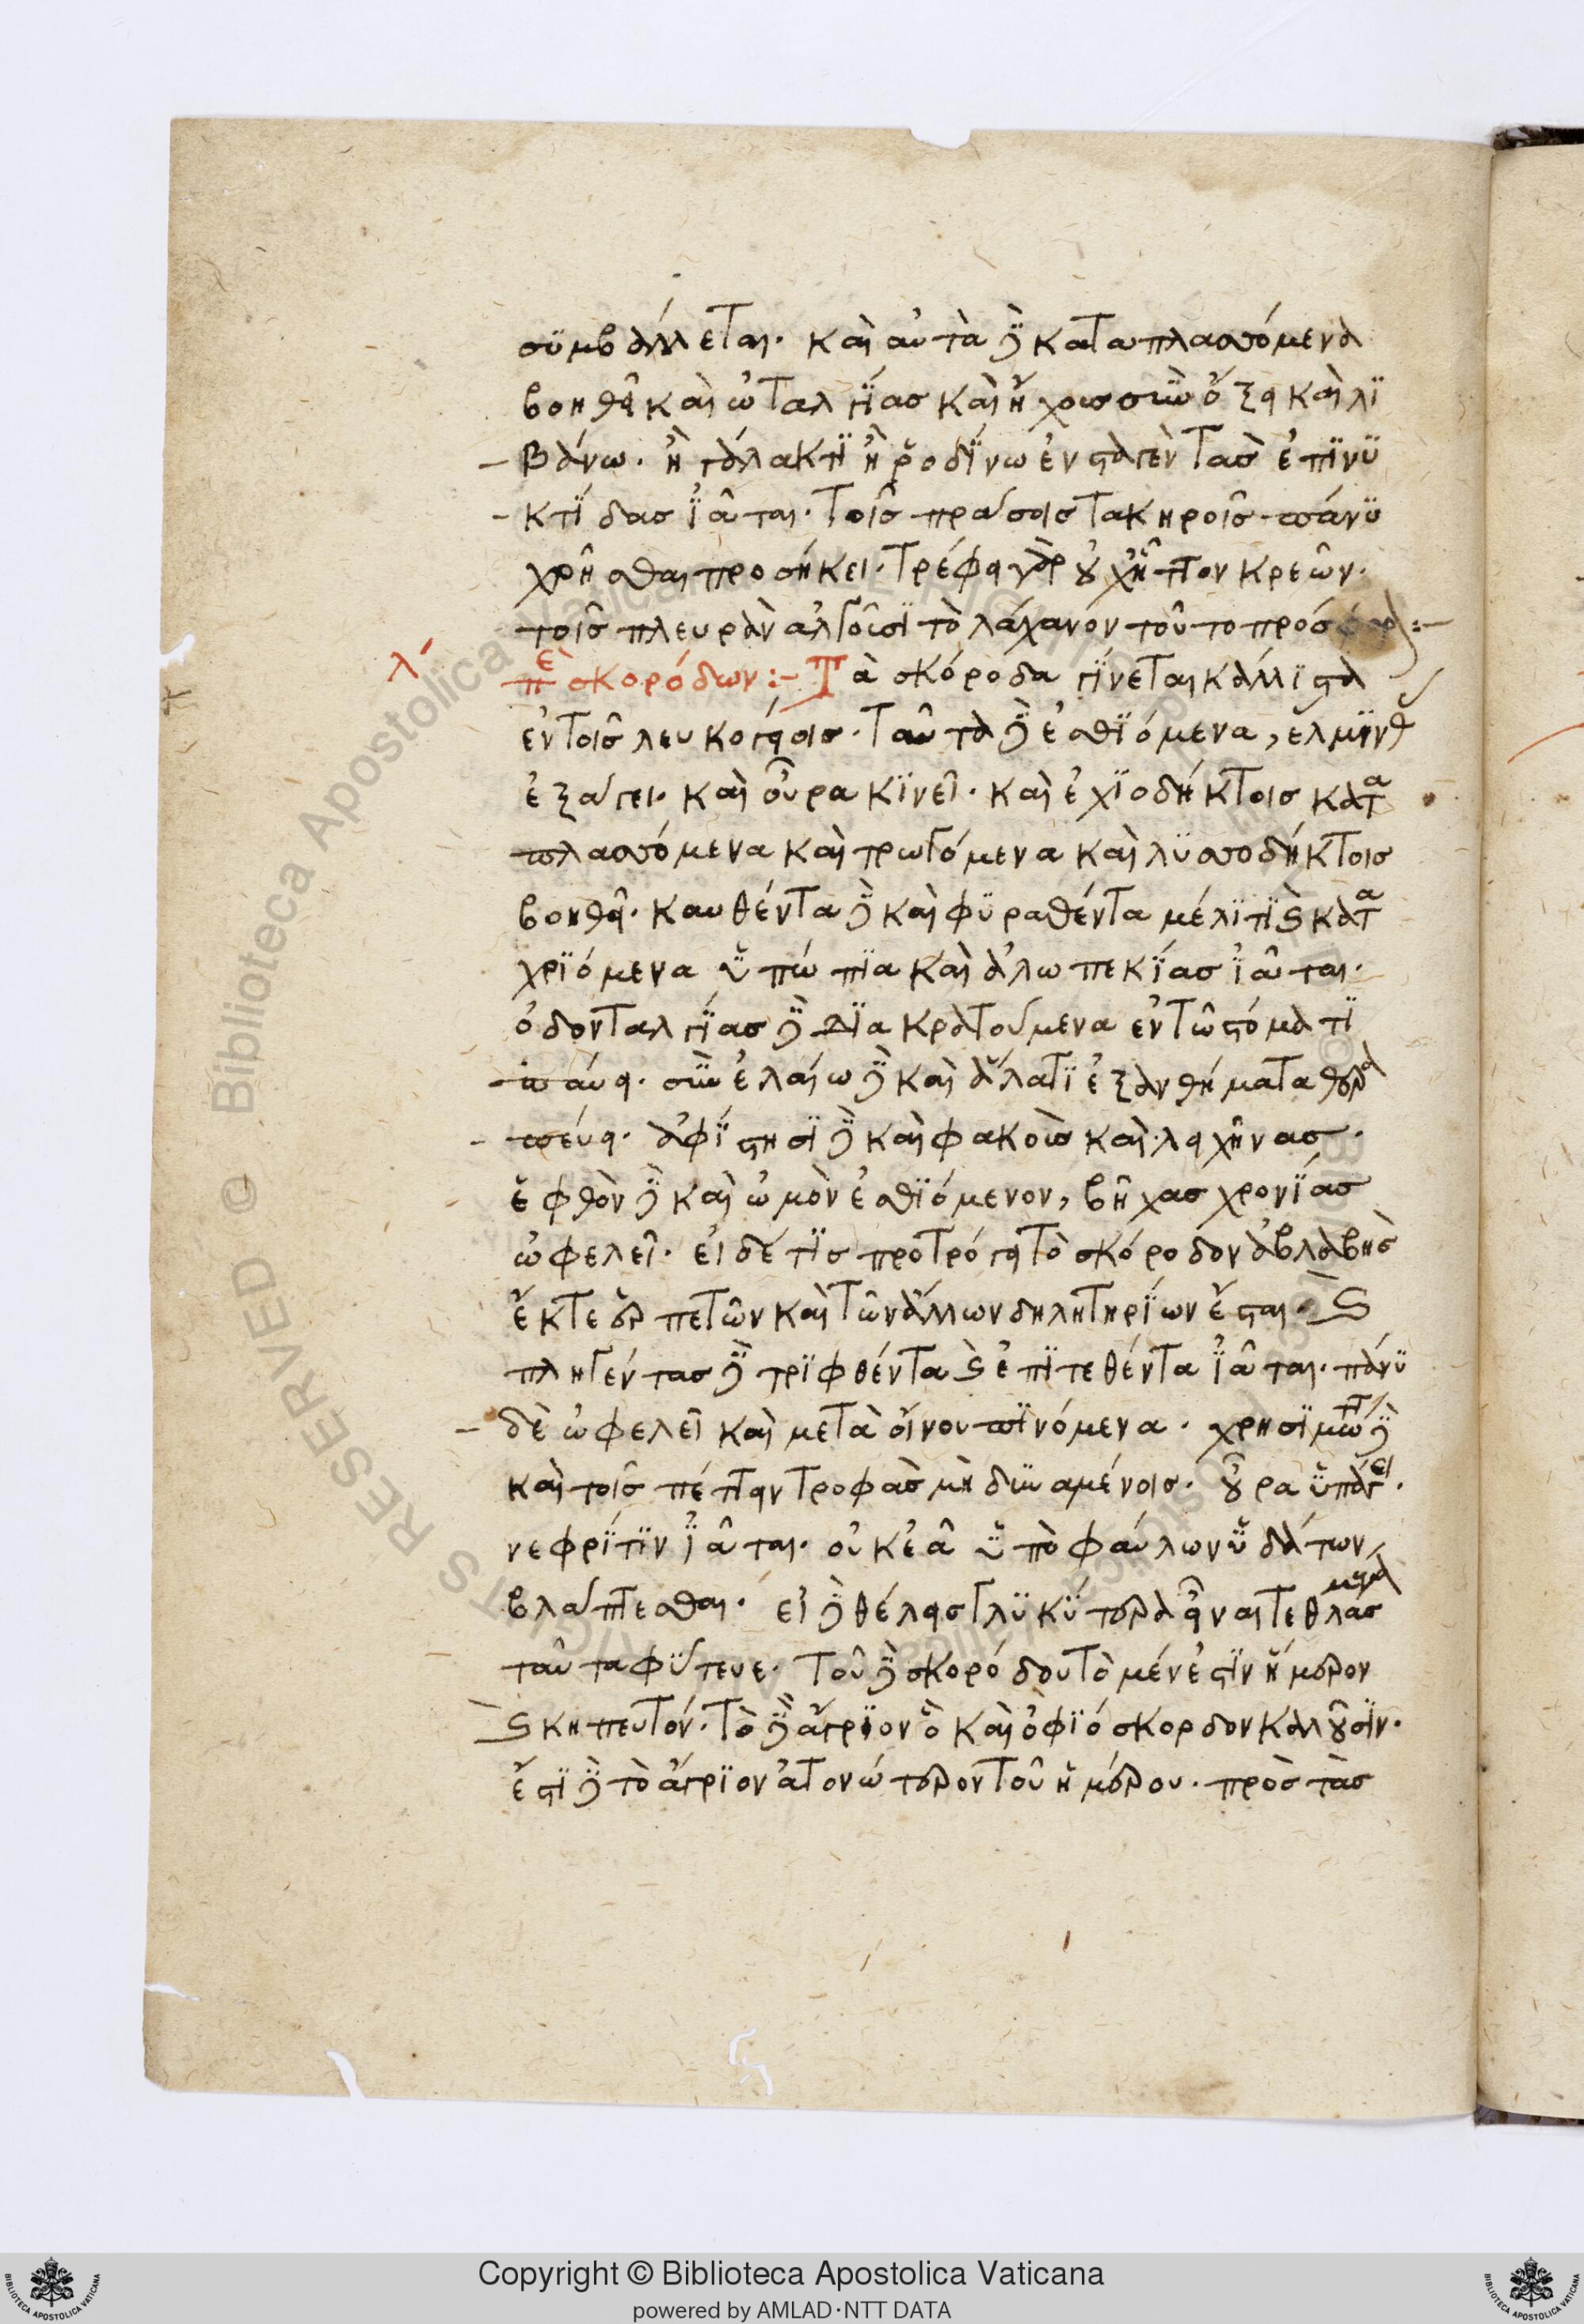 συμβάλλεται. καὶ αὐτὰ δὲ καταπλασσόμενα
βοηθεῖ καὶ ὠταλγίας καὶ ἤχους σὺν ὄξει καὶ λι
βάνω. ἢ γάλακτι ἢ ῥοδίνω ἐνσταγέντας ἐπινυ
κτίδας ἰᾶται. τοῖς πράσοις τακηροῖς πάνυ
χρῆσθαι προσήκει. τρέφει γὰρ οὐχ ἧττον κρεῶν.
τοῖς πλευρὰν ἀλγοῦσι τὸ λάχανον τοῦτο πρόσφορα:-
λ πε σκορόδων :- Τὰ σκόροδα γίνεται κάλλιστα
ἐν τοῖς λευκογείοις. ταῦτα δὲ ἐσθιόμενα, ελμινθ
ἐξάγει. καὶ οὖρα κινεῖ. καὶ ἐχιοδήκτοις κατα
πλασσόμενα καὶ τρωγόμενα καὶ λυσσοδήκτοις
βοηθεῖ. καυθέντα δὲ καὶ φυραθέντα μέλιτι καὶ κατα
χριόμενα ὑπώπια καὶ ἀλωπεκίας ἰᾶται.
ὀδονταλγίας δὲ διακρατούμενα ἐν τῶ στόματι
παύει. σὺν ἐλαίω δὲ καὶ ἅλατι ἐξανθήματα θερα
πεύει. ἀφίστησι δὲ καὶ φακοὺς καὶ λειχῆνας.
ἑφθὸν δὲ καὶ ὠμὸν ἐσθιόμενον, βῆχας χρονίας
ὠφελεῖ. εἰ δέ τις προτρώγει τὸ σκόροδον ἀβλαβὴς
ἔκ τε ἑρπετῶν καὶ τῶν ἄλλων δηλητηρίων ἔσται. καὶ
πληγέντας δὲ τριφθέντα καὶ ἐπιτεθέντα ἰᾶται. πάνυ
δὲ ὠφελεῖ καὶ μετὰ οἴνου πινόμενα. χρησιμωτ δὲ
καὶ τοῖς πέπτειν τροφὰς μὴ δυναμένοις. οὖρα ὑπάγει.
νεφρίτιν ἰᾶται. οὐκ ἐᾶ ὑπὸ φαύλων ὑδάτων
βλάπτεσθαι. εἰ δὲ θέλεις γλυκύτερα εἶναι τεθλασμένα
ταῦτα φύτευε. τοῦ δὲ σκορόδου τὸ μέν ἐστιν ἥμερον
καὶ κηπευτόν. τὸ δὲ ἄγριον ὃ καὶ ὀφιόσκορδον καλοῦσιν.
ἔστι δὲ τὸ ἄγριον ἀτονώτερον τοῦ ἡμέρου. πρὸς τὰς
Copyright © Biblioteca Apostolica Vaticana
powered by AMLAD·NTT DATA